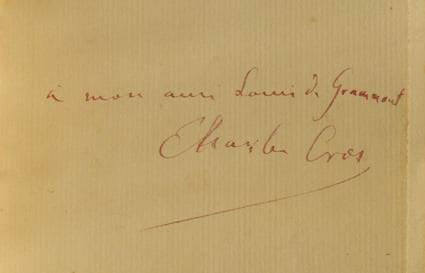 à mon ami Louis de Grammont
Charles Cros